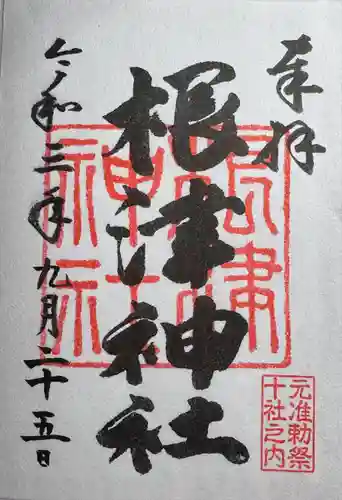 奉拝
根津神社
令和三年九月二十五日
根津神社
元准勅祭
十社之内